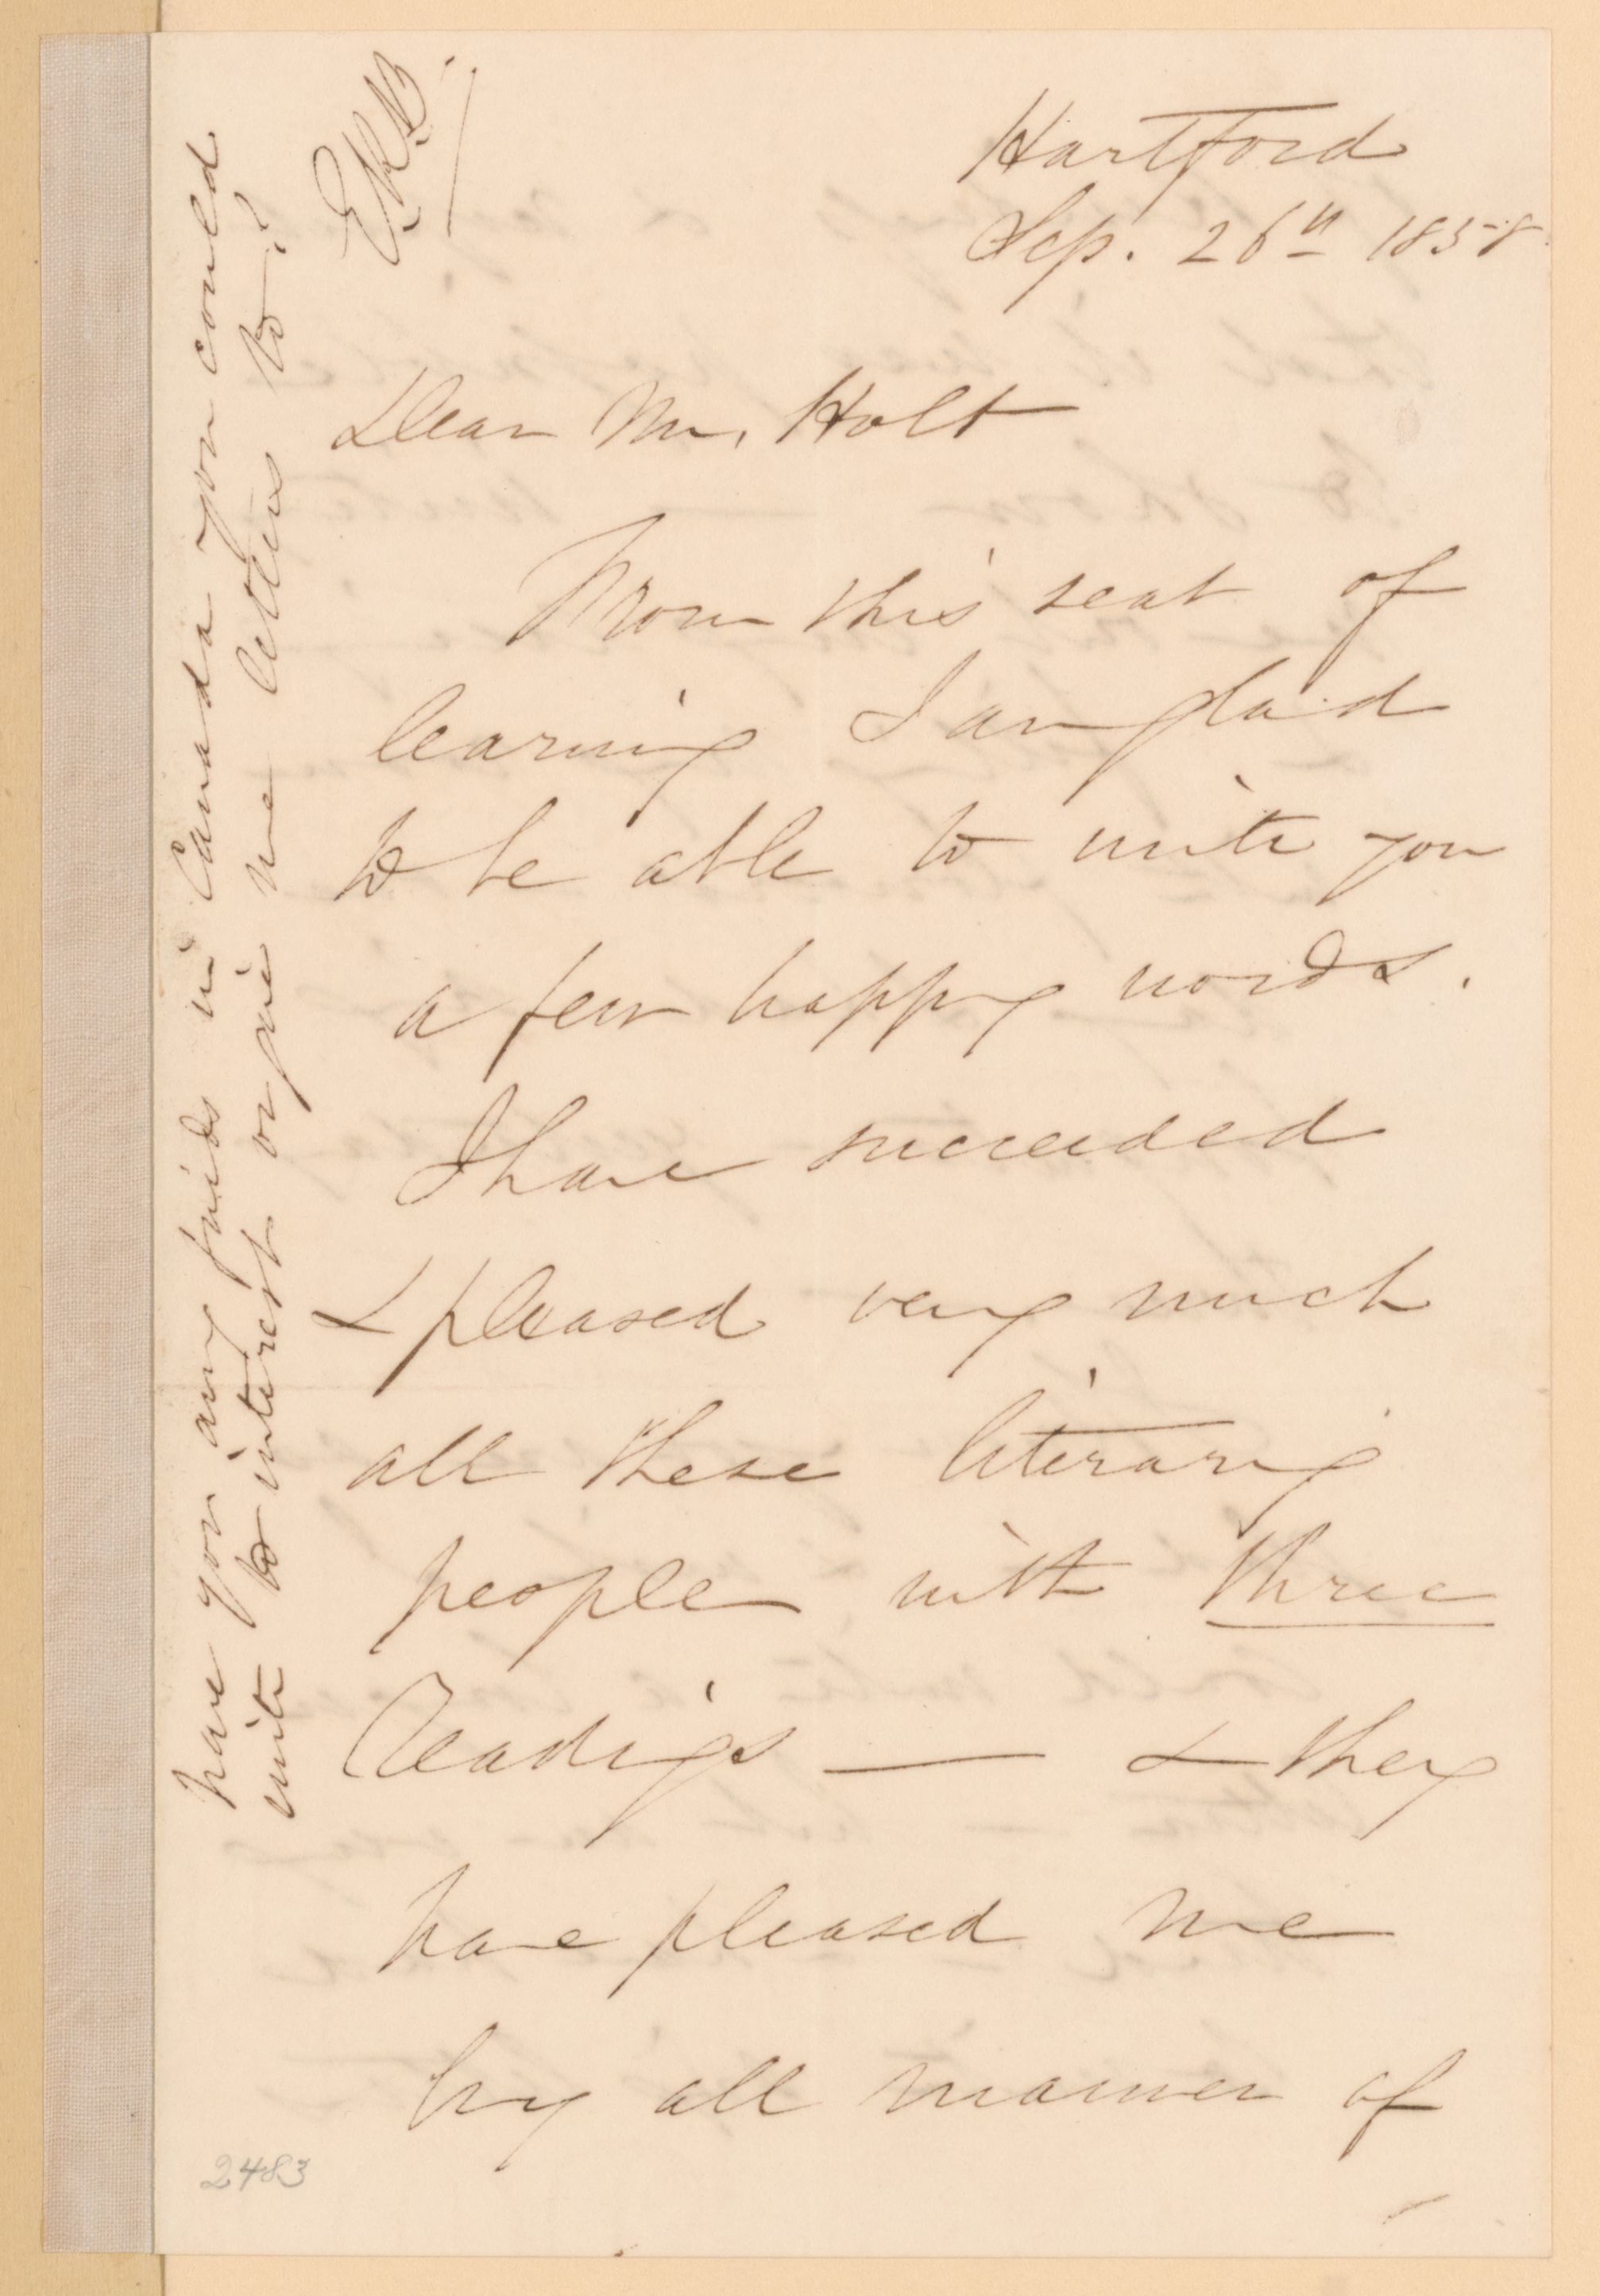 Hartford
Sep. 26th 1858.
Dear Mr. Holt
From this seat of
learning I am glad
to be able to write you
a few happy words.
I have succeeded
& pleased very much
all these literary
people with three
Readings — & they
have pleased me
by all manner of
have you any friends in Canada you could
write to interest or give me letters to?
E.K.B.
2483